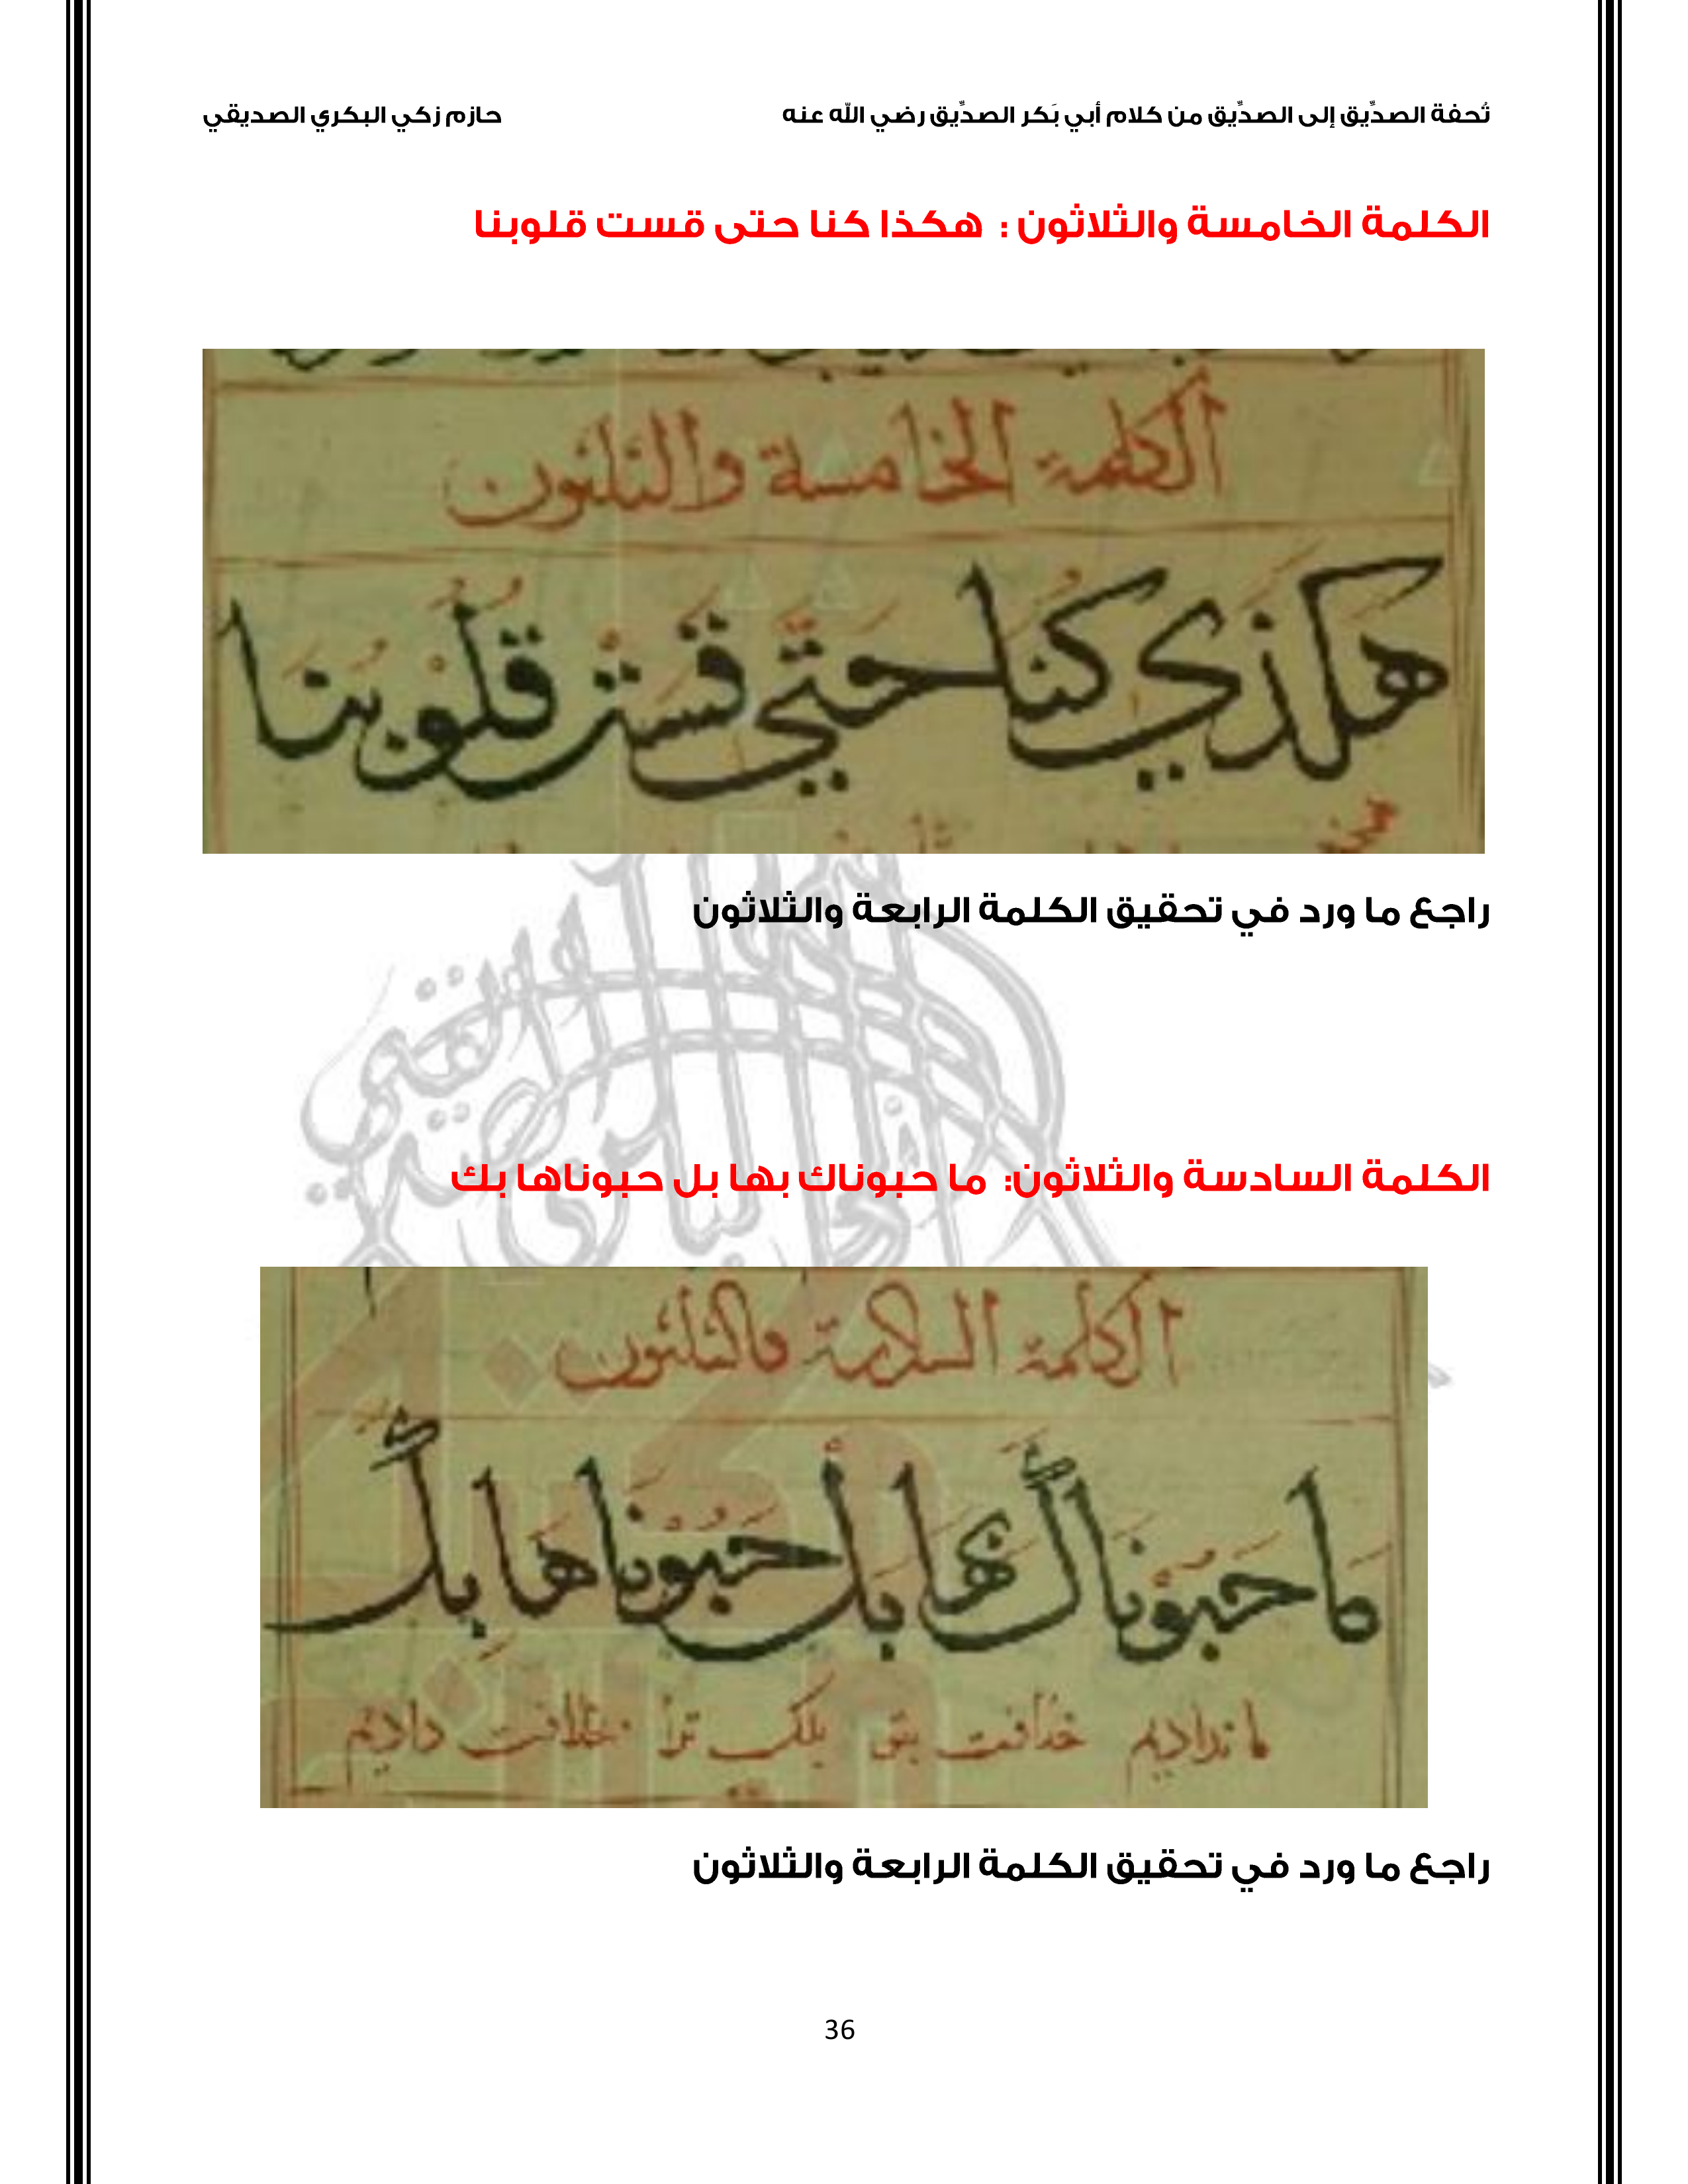 تُحفة الصدِّيق إلى الصدِّيق من كلام أبي بَكر الصدِّيق رضي الله عنه حازم زكي البكري الصديقي
الكلمة الخامسة والثلاثون : هكذا كنا حتى قست قلوبنا
الكلمة الخامسة والثلثون
هكذي كنا حتي قست قلوبنا
راجع ما ورد في تحقيق الكلمة الرابعة والثلاثون
الكلمة السادسة والثلاثون: ما حبوناك بها بل حبوناها بك
الكلمة السادسة والثلثون
ما حَبَوْنَاكَ بها بَلْ حَبَوْنَاهَا بِكَ
ما نداديم خلافت بتو بلكه ترا بخلافت داديم
راجع ما ورد في تحقيق الكلمة الرابعة والثلاثون
36